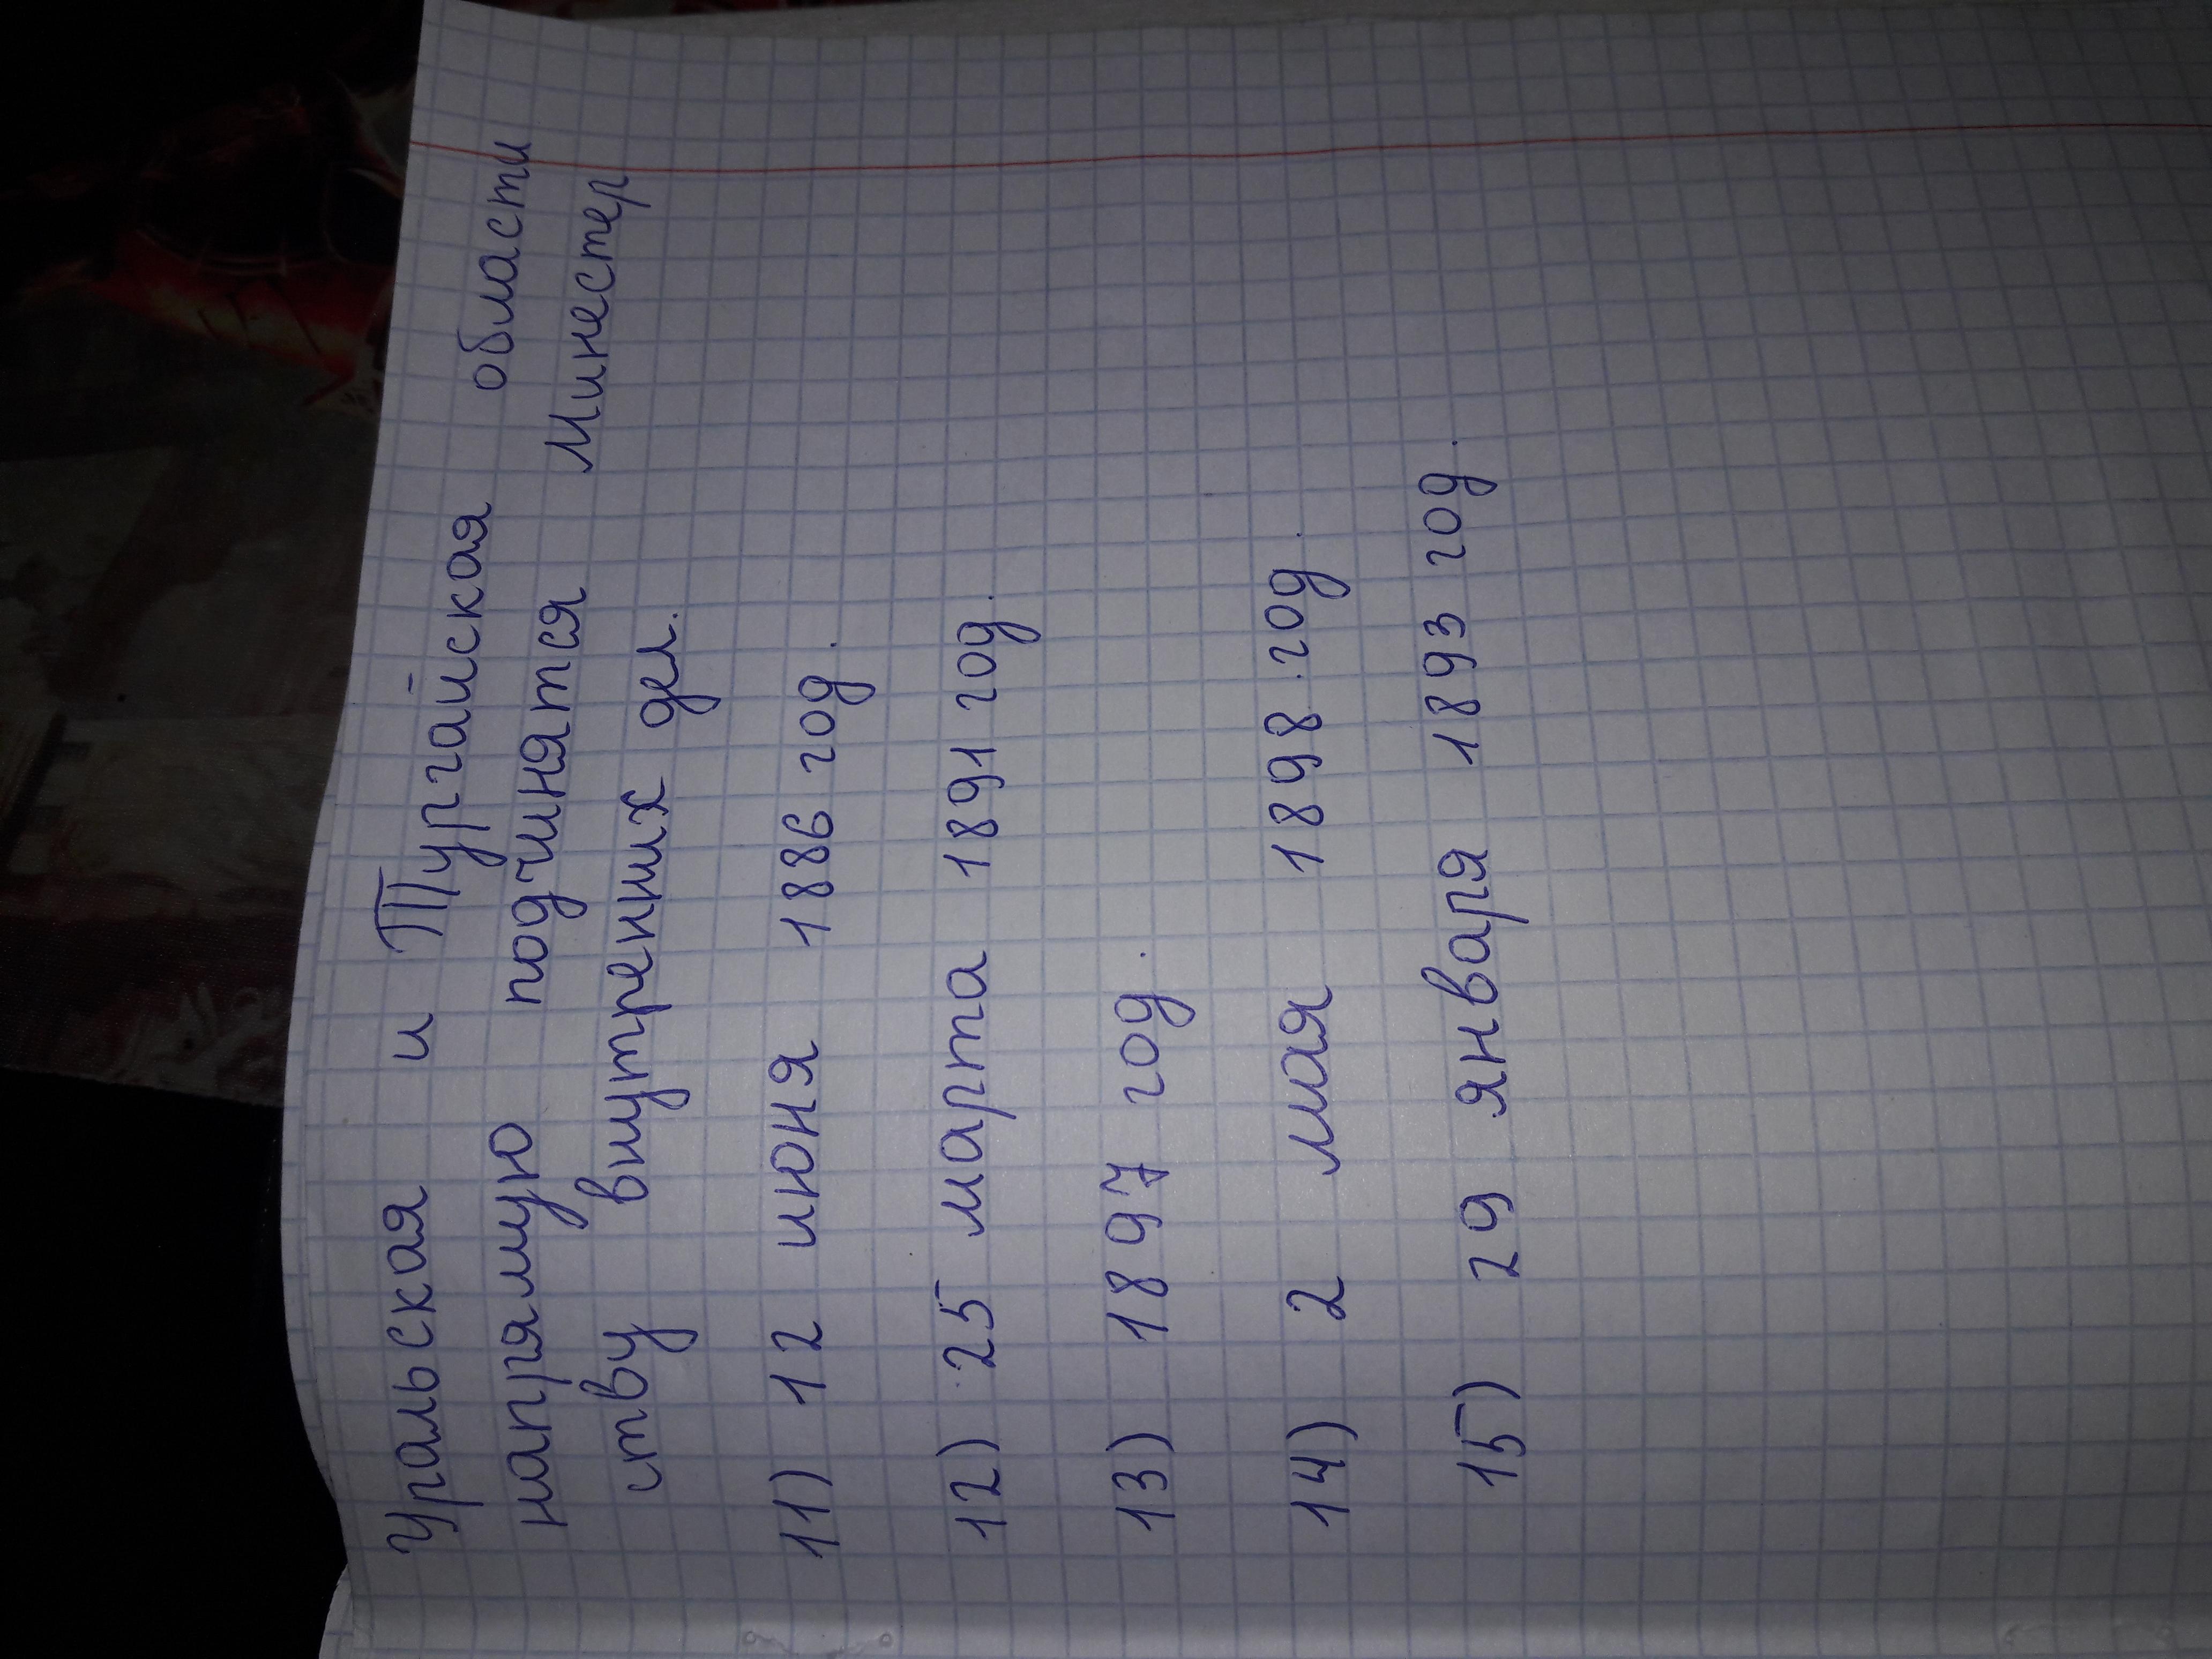 Уральская и Тургайская области
напрямую подчинятся Минестер
ству внутренних дел.
11) 12 июня 1886 год.
12) 25 марта 1891 год.
13) 1897 год.
14) 2 мая 1898 год.
15) 29 января 1893 год.